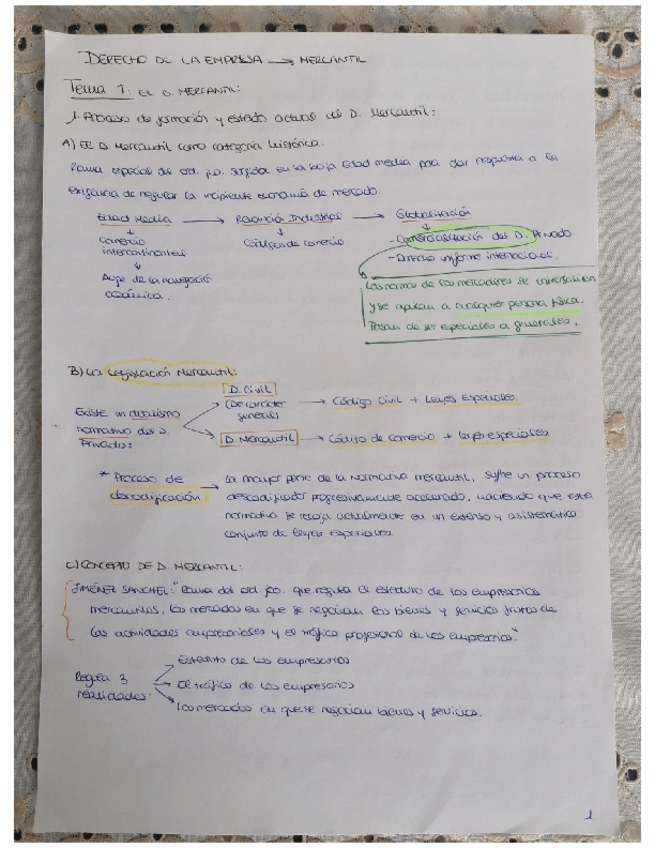 DERECHO DE LA EMPRESA → MERCANTIL
Tema 1: EL D. MERCANTIL:
1. Proceso de formación y estado actual del D. Mercantil:
A) EL D. Mercantil como categoría histórica:
Rama especial del ord. jco. surgida en la baja Edad media para dar respuesta a la
exigencia de regular la incipiente economía de mercado.
Edad Media → Revolución Industrial → Globalización
Comercio intercontinental
Auge de la navegación oceánica.
Códigos de comercio
- Comercialización del D. Privado
- Derecho uniforme internacional.
Las normas de los mercaderes se universalizan
y se aplican a cualquier persona física.
Pasan de ser especiales a generales.
B) La Legislación Mercantil:
Existe un dualismo
normativo del D.
Privado:
D. Civil
(De carácter
general)
→ Código Civil + Leyes Especiales.
D. Mercantil → Código de comercio + leyes especiales
* Proceso de
descodificación
→ La mayor parte de la normativa mercantil, sufre un proceso
descodificador progresivamente acelerado, haciendo que esta
normativa se recoja actualmente en un extenso y asistemático
conjunto de leyes especiales.
C) CONCEPTO DE D. MERCANTIL:
JIMÉNEZ SÁNCHEZ: "Rama del ord. jco. que regula el estatuto de los empresarios
mercantiles, los mercados en que se negocian los bienes y servicios frutos de
las actividades empresariales y el tráfico profesional de los empresarios."
Regula 3
realidades:
Estatuto de los empresarios
El tráfico de los empresarios
Los mercados en que se negocian bienes y servicios.
1